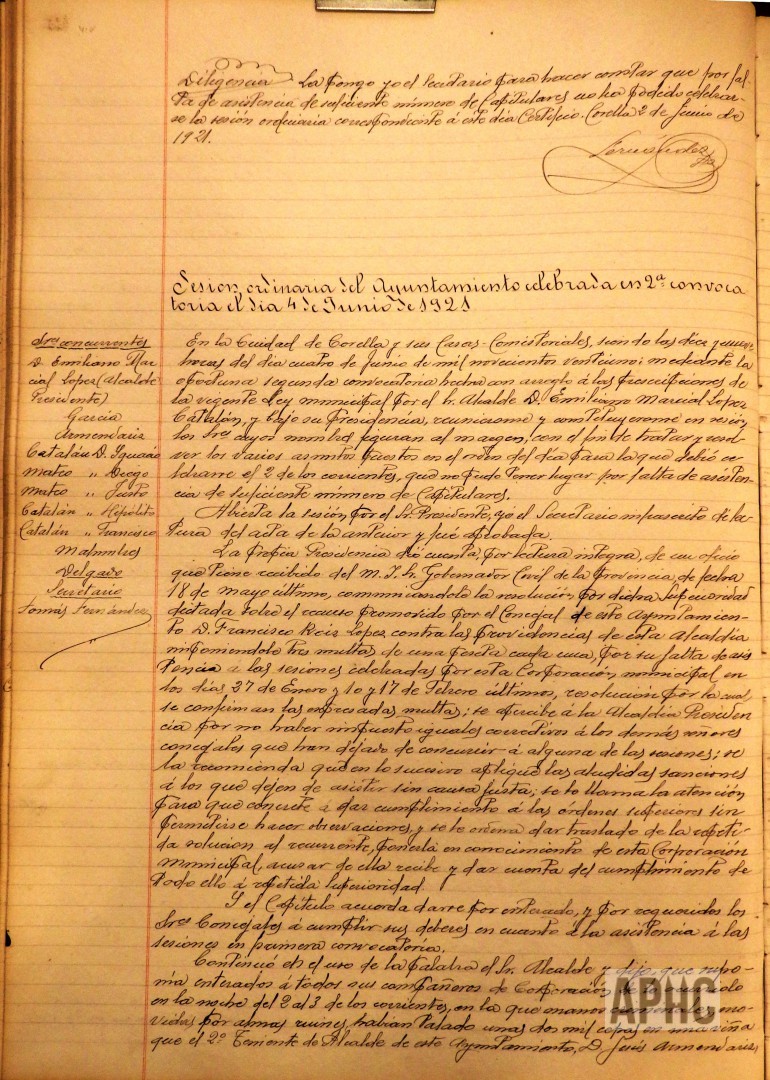 Diligencia La pongo yo el Secretario para hacer constar que por fal-
ta de asistencia de suficiente número de Capitulares no ha podido celebrar-
se la sesión ordinaria correspondiente á este día Certifico. Corella 2 de Junio de
1921.
Fernández
Sesion ordinaria del Ayuntamiento celebrada en 2ª convoca
toria el dia 4 de Junio de 1921
Sres concurrentes
D. Emiliano Mar
cial Lopez (Alcalde
Presidente)
Garcia
Armendariz
Catalán D. Ignacio
Mateo " Diego
Mateo " Justo
Catalán " Hipólito
Catalán " Francisco
Malumbres
Delgado
Secretario
Tomás Fernández
En la Ciudad de Corella y sus Casas-Consistoriales, siendo las diez y nueve
horas del día cuatro de Junio de mil novecientos veintiuno; mediante la
oportuna segunda convocatoria hecha con arreglo á las prescripciones de
la vigente Ley municipal por el Sr. Alcalde D. Emiliano Marcial Lopez
Catalán, y bajo su Presidencia, reunieronse y constituyeronse en sesión
los Sres cuyos nombres figuran al margen, con el fin de tratar y resol
ver los varios asuntos puestos en el orden del día para la que debió ce
lebrarse el 2 de los corrientes, que no pudo tener lugar por falta de asisten-
cia de suficiente número de Capitulares.
Abierta la sesión por el Sr. Presidente, yo el Secretario infrascrito dí lec
tura del acta de la anterior y fué aprobada.
La propia Presidencia dió cuenta, por lectura integra, de un oficio
que tiene recibido del M. I. Sr. Gobernador Civil de la Provincia, de fecha
18 de mayo último, comunicandole la resolución por dicha Superioridad
dictada sobre el recurso promovido por el Concejal de este Ayuntamien-
to D. Francisco Ruiz Lopez contra las providencias de esta Alcaldia
imponiendole tres multas de una peseta cada una, por su falta de asis
tencia á las sesiones celebradas por esta Corporación municipal en
los días 27 de Enero y 10 y 17 de Febrero últimos, resolución por la cual
se confirman las expresadas multas; se apercibe á la Alcaldia Presiden
cia por no haber impuesto iguales correctivos á los demás señores
concejales que han dejado de concurrir á alguna de las sesiones; se
la recomienda que en lo sucesivo aplique las aludidas sanciones
á los que dejen de asistir sin causa justa; se le llama la atención
para que concrete á dar cumplimiento á las órdenes superiores sin
permitirse hacer observaciones, y se le ordena dar traslado de la repeti
da solucion al recurrente, ponerla en conocimiento de esta Corporación
municipal, acusar de ella recibo y dar cuenta del cumplimiento de
todo ello á repetida Superioridad.
Y el Capítulo acuerda darse por enterado, y por requeridos los
Sres Concejales á cumplir sus deberes en cuanto á la asistencia á las
sesiones en primera convocatoria.
Continuó en el uso de la palabra el Sr. Alcalde y dijo: que supo-
nía enterados á todos sus compañeros de Corporación
en la noche del 2 al 3 de los corrientes, en la que manos
vidas por almas ruines, habian talado unas dos mil cepas en una viña
que el 2º Teniente de Alcalde de este Ayuntamiento, D. Jesús Armendariz,
APHC